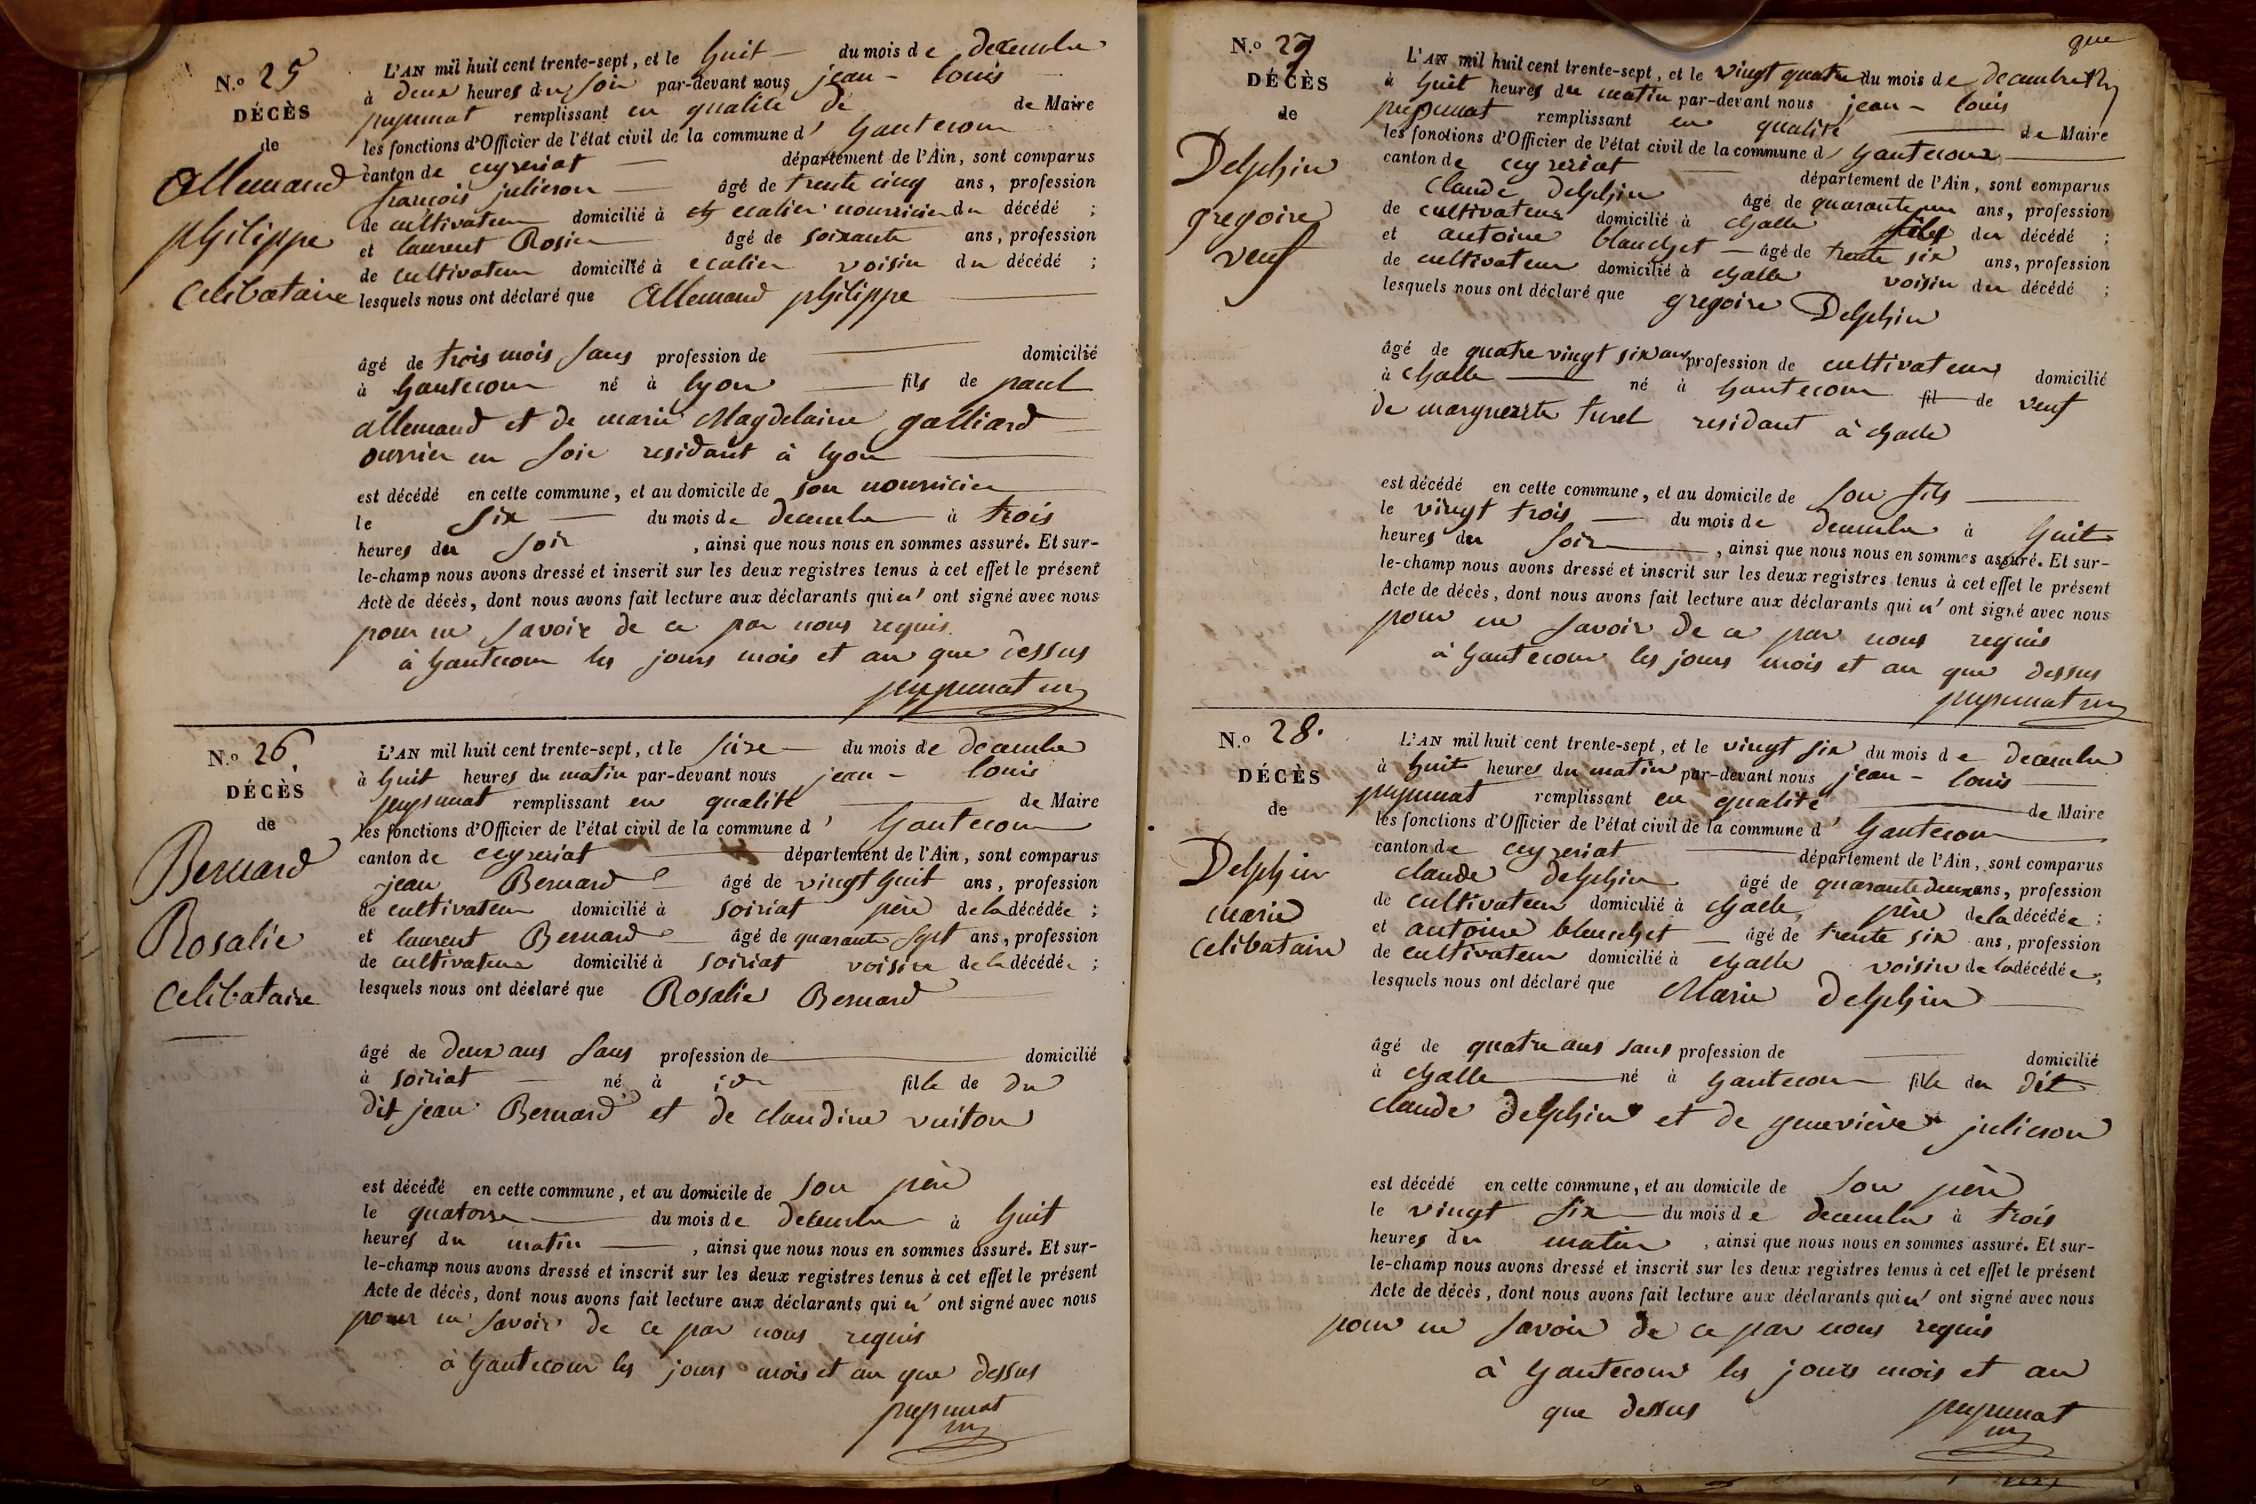 N.o 25
DÉCÈS
de
Allemand
philippe
Celibataire
L'AN mil huit cent trente-sept, et le huit du mois de decembre
à deux heures du soir par-devant nous jean-louis
pupunat remplissant en qualité de de Maire
les fonctions d'Officier de l'état civil de la commune d' hautecour
canton de ceyzeriat département de l'Ain, sont comparus
françois julieron âgé de trente cinq ans, profession
de cultivateur domicilié à ecalier nourricier du décédé ;
et laurent Rosier âgé de soixante ans, profession
de cultivateur domicilié à ecalier voisin du décédé ;
lesquels nous ont déclaré que Allemand philippe
âgé de trois mois sans profession de domicilié
à hautecour né à lyon fils de paul
allemand et de marie Magdelaine galliard
ouvrier en soie residant à lyon
est décédé en cette commune, et au domicile de son nourricier
le six du mois de decembre à trois
heures du soir , ainsi que nous nous en sommes assuré. Et sur-
le-champ nous avons dressé et inscrit sur les deux registres tenus à cet effet le présent
Acte de décès, dont nous avons fait lecture aux déclarants qui n' ont signé avec nous
pour ne savoir de ce par nous requis
à hautecour les jours mois et an que dessus
pupunat
N.o 26
DÉCÈS
de
Bernard
Rosalie
Celibataire
L'AN mil huit cent trente-sept, et le seize du mois de decembre
à huit heures du matin par-devant nous jean-louis
pupunat remplissant en qualité de Maire
les fonctions d'Officier de l'état civil de la commune d' hautecour
canton de ceyzeriat département de l'Ain, sont comparus
jean Bernard âgé de vingt huit ans, profession
de cultivateur domicilié à soiriat père de la décédée ;
et laurent Bernard âgé de quarante sept ans, profession
de cultivateur domicilié à soiriat voisin de la décédée ;
lesquels nous ont déclaré que Rosalie Bernard
âgé de deux ans sans profession de domicilié
à soiriat né à id fille de du
dit jean Bernard et de claudine vuiton
est décédé en cette commune, et au domicile de son père
le quatorze du mois de decembre à huit
heures du matin , ainsi que nous nous en sommes assuré. Et sur-
le-champ nous avons dressé et inscrit sur les deux registres tenus à cet effet le présent
Acte de décès, dont nous avons fait lecture aux déclarants qui n' ont signé avec nous
pour ne savoir de ce par nous requis
à hautecour les jours mois et an que dessus
pupunat
N.o 27
DÉCÈS
de
Delphin
gregoire
veuf
que
L'AN mil huit cent trente-sept, et le vingt quatre du mois de decembre
à huit heures du matin par-devant nous jean-louis
pupunat remplissant en qualité de Maire
les fonctions d'Officier de l'état civil de la commune d' hautecour
canton de ceyzeriat département de l'Ain, sont comparus
claude delphin âgé de quarante un ans, profession
de cultivateur domicilié à challe fils du décédé ;
et antoine blanchet âgé de trente six ans, profession
de cultivateur domicilié à challe voisin du décédé ;
lesquels nous ont déclaré que gregoire Delphin
âgé de quatre vingt six ans profession de cultivateur domicilié
à challe né à hautecour fil de veuf
de marguerite turel residant à challe
est décédé en cette commune, et au domicile de son fils
le vingt trois du mois de decembre à huit
heures du soir , ainsi que nous nous en sommes assuré. Et sur-
le-champ nous avons dressé et inscrit sur les deux registres tenus à cet effet le présent
Acte de décès, dont nous avons fait lecture aux déclarants qui n' ont signé avec nous
pour ne savoir de ce par nous requis
à hautecour les jours mois et an que dessus
pupunat
N.o 28.
DÉCÈS
de
Delphin
marie
Celibataire
L'AN mil huit cent trente-sept, et le vingt six du mois de decembre
à huit heures du matin par-devant nous jean-louis
pupunat remplissant en qualité de Maire
les fonctions d'Officier de l'état civil de la commune d' hautecour
canton de ceyzeriat département de l'Ain, sont comparus
claude delphin âgé de quarante deux ans, profession
de cultivateur domicilié à challe père de la décédée ;
et antoine blanchet âgé de trente six ans, profession
de cultivateur domicilié à challe voisin de la décédée ;
lesquels nous ont déclaré que Marie delphin
âgé de quatre ans sans profession de domicilié
à challe né à hautecour fille du dit
claude delphin et de genevieve julieron
est décédé en cette commune, et au domicile de son père
le vingt six du mois de decembre à trois
heures du matin , ainsi que nous nous en sommes assuré. Et sur-
le-champ nous avons dressé et inscrit sur les deux registres tenus à cet effet le présent
Acte de décès, dont nous avons fait lecture aux déclarants qui n' ont signé avec nous
pour ne savoir de ce par nous requis
à hautecour les jours mois et an
que dessus
pupunat